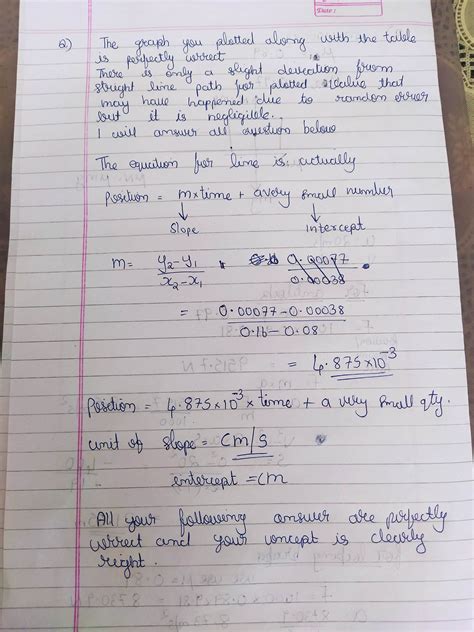 Date:
Q) The graph you plotted along with the table
is perfectly correct
There is only a slight deviation from
straight line path for plotted value that
may have happened due to random error
but it is negligible.
I will answer all question below
The equation for line is actually
Position = m×time + a very small number
Slope Intercept
m = y2-y1 / x2-x1 0.00077 / 0.00038
= 0.00077-0.00038 / 0.16-0.08
= 4.875×10^-3
Position = 4.875×10^-3 × time + a very small qty.
unit of slope = cm/s
intercept = cm
All your following answer are perfectly
correct and your concept is clearly
right.